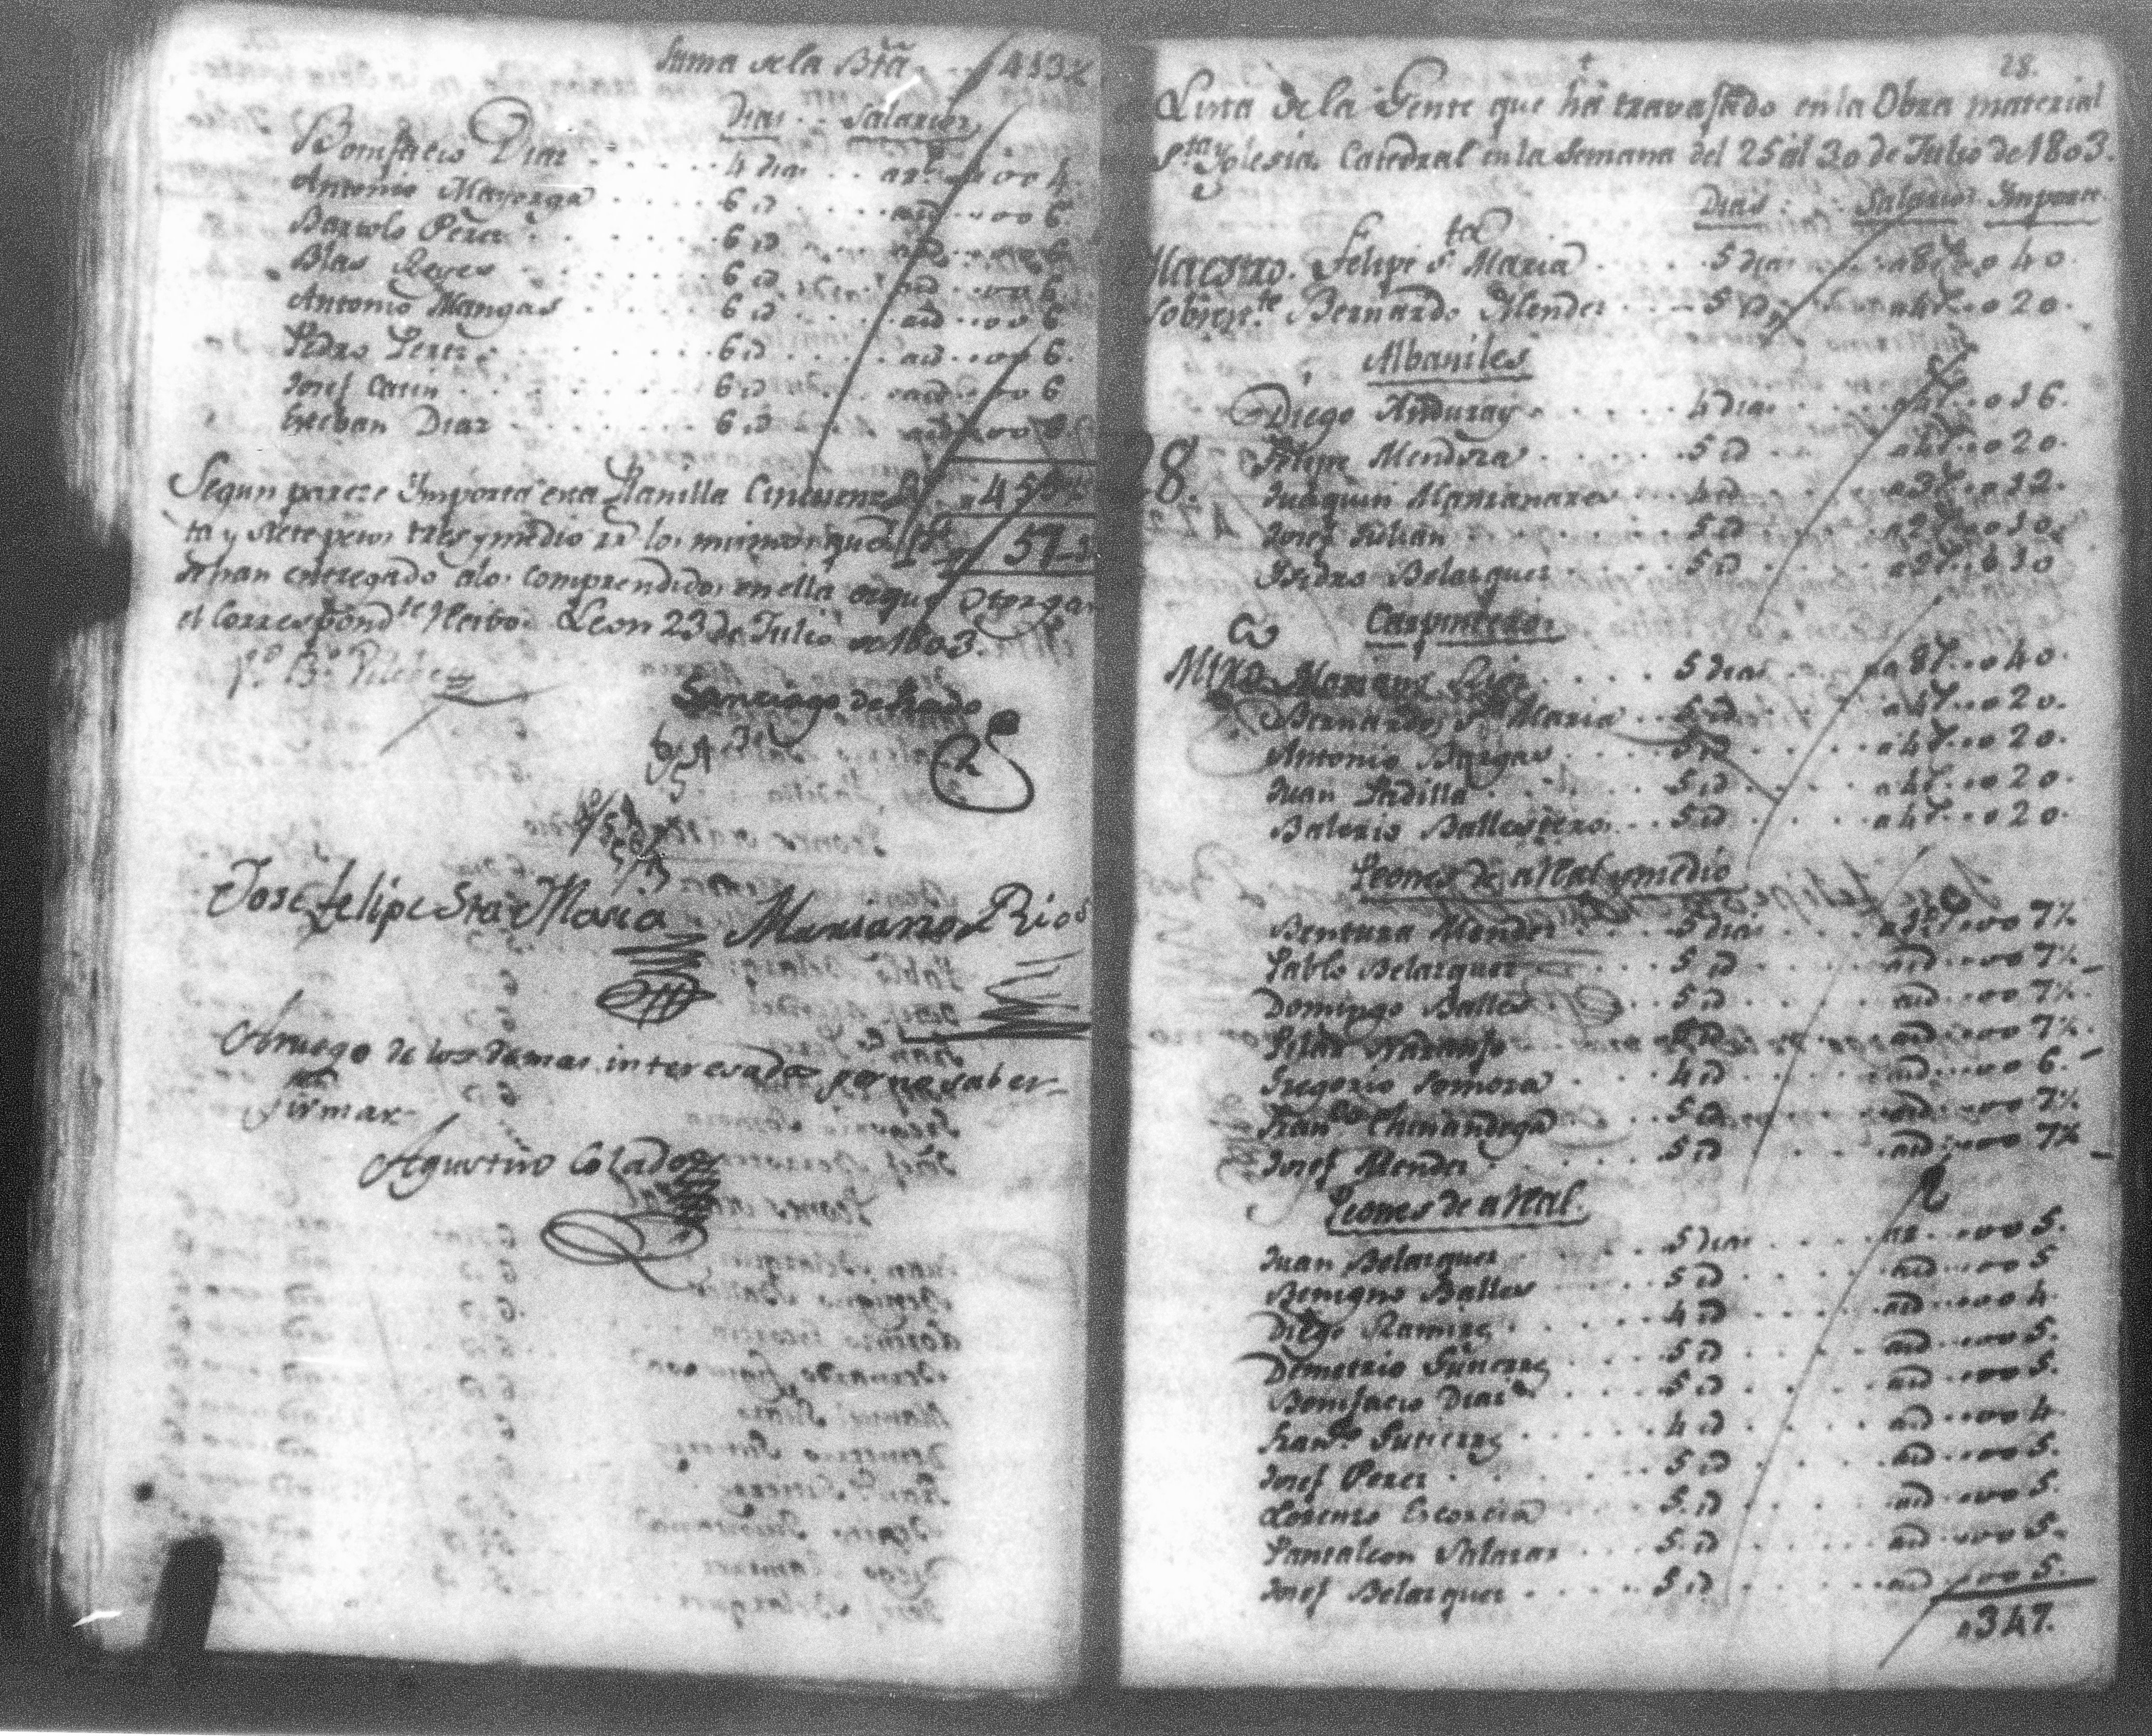 Suma de la Bta 413½
Dias Salarios
Bonifacio Diaz 4 dias a 1 r.l 4.
Antonio Mayorga 6 id aid 6.
Bartolo Perez 6 id aid 6
Blas Reyes 6 id aid 6
Antonio Mangas 6 id aid 6
Pedro Perez 6 id aid 6.
Josef Catin 6 id aid 6
Esteban Diaz 6 id aid
Segun pareze Importa esta Planilla Cincuen
ta y siete pesos tres y medio rr.s los mismos que 57-3
se han entregado alos comprendidos en ella de que Otorgan
el Correspond.te Recibo. Leon 23 de Julio de 1803.
V.o B.o
Santiago de Prado
Jose felipe Sta Maria Mariano Rios
Arruego de los demas interesados por no saber
firmar
Agustino Calado
28.
Lista de la Gente que ha travajado en la Obra material
S.ta Yglesia Catedral en la Semana del 25 al 30 de Julio de 1803.
Dias Salarios Importe
Maestro. Felipe S.ta Maria 5 dias a 8 r. 40.
Sobrest.te Bernardo Mendez 5 id a 4 r. 20.
Albaniles
Diego Anduray 4 dias a 4 r. 16.
Felipe Mendoza 5 id a 4 r. 20.
8. Juaquin Manzanares 4 id a 3 r. 12.
Josef Julian 5 id a 2 r. 10.
Isidro Belazquez 5 id a 2 r. 10
Carpinteros
Mtro Mariano Rios 5 dias a 8 r. 40.
Bernardo S.ta Maria 5 id a 4 r. 20.
Antonio Bargas 5 id a 4 r. 20.
Juan Padilla 5 id a 4 r. 20.
Balerio Ballesteros 5 id a 4 r. 20.
Peones de a Real y medio
Bentura Mendez 5 dias a 1½ r. 7½
Pablo Belazquez 5 id aid 7½
Domingo Balles 5 id aid 7½.
Pilar Naranjo 5 id aid 7½.
Gregorio Somoza 4 id aid 6.
Fran.co Chinandega 5 id aid 7½
Josef Mendez 5 id aid 7½
Peones de a Real.
Juan Belazquez 5 dias a 1 r. 5.
Benigno Balles 5 id aid 5
Diego Ramirez 4 id aid 4.
Demetrio Gutierrez 5 id aid 5.
Bonifacio Diaz 5 id aid 5.
Fran.co Gutierrez 4 id aid 4
Josef Perez 5 id aid 5.
Lorenzo Escorcia 5 id aid 5.
Pantaleon Salazar 5 id aid 5.
Josef Belazquez 5 id aid 5.
347.